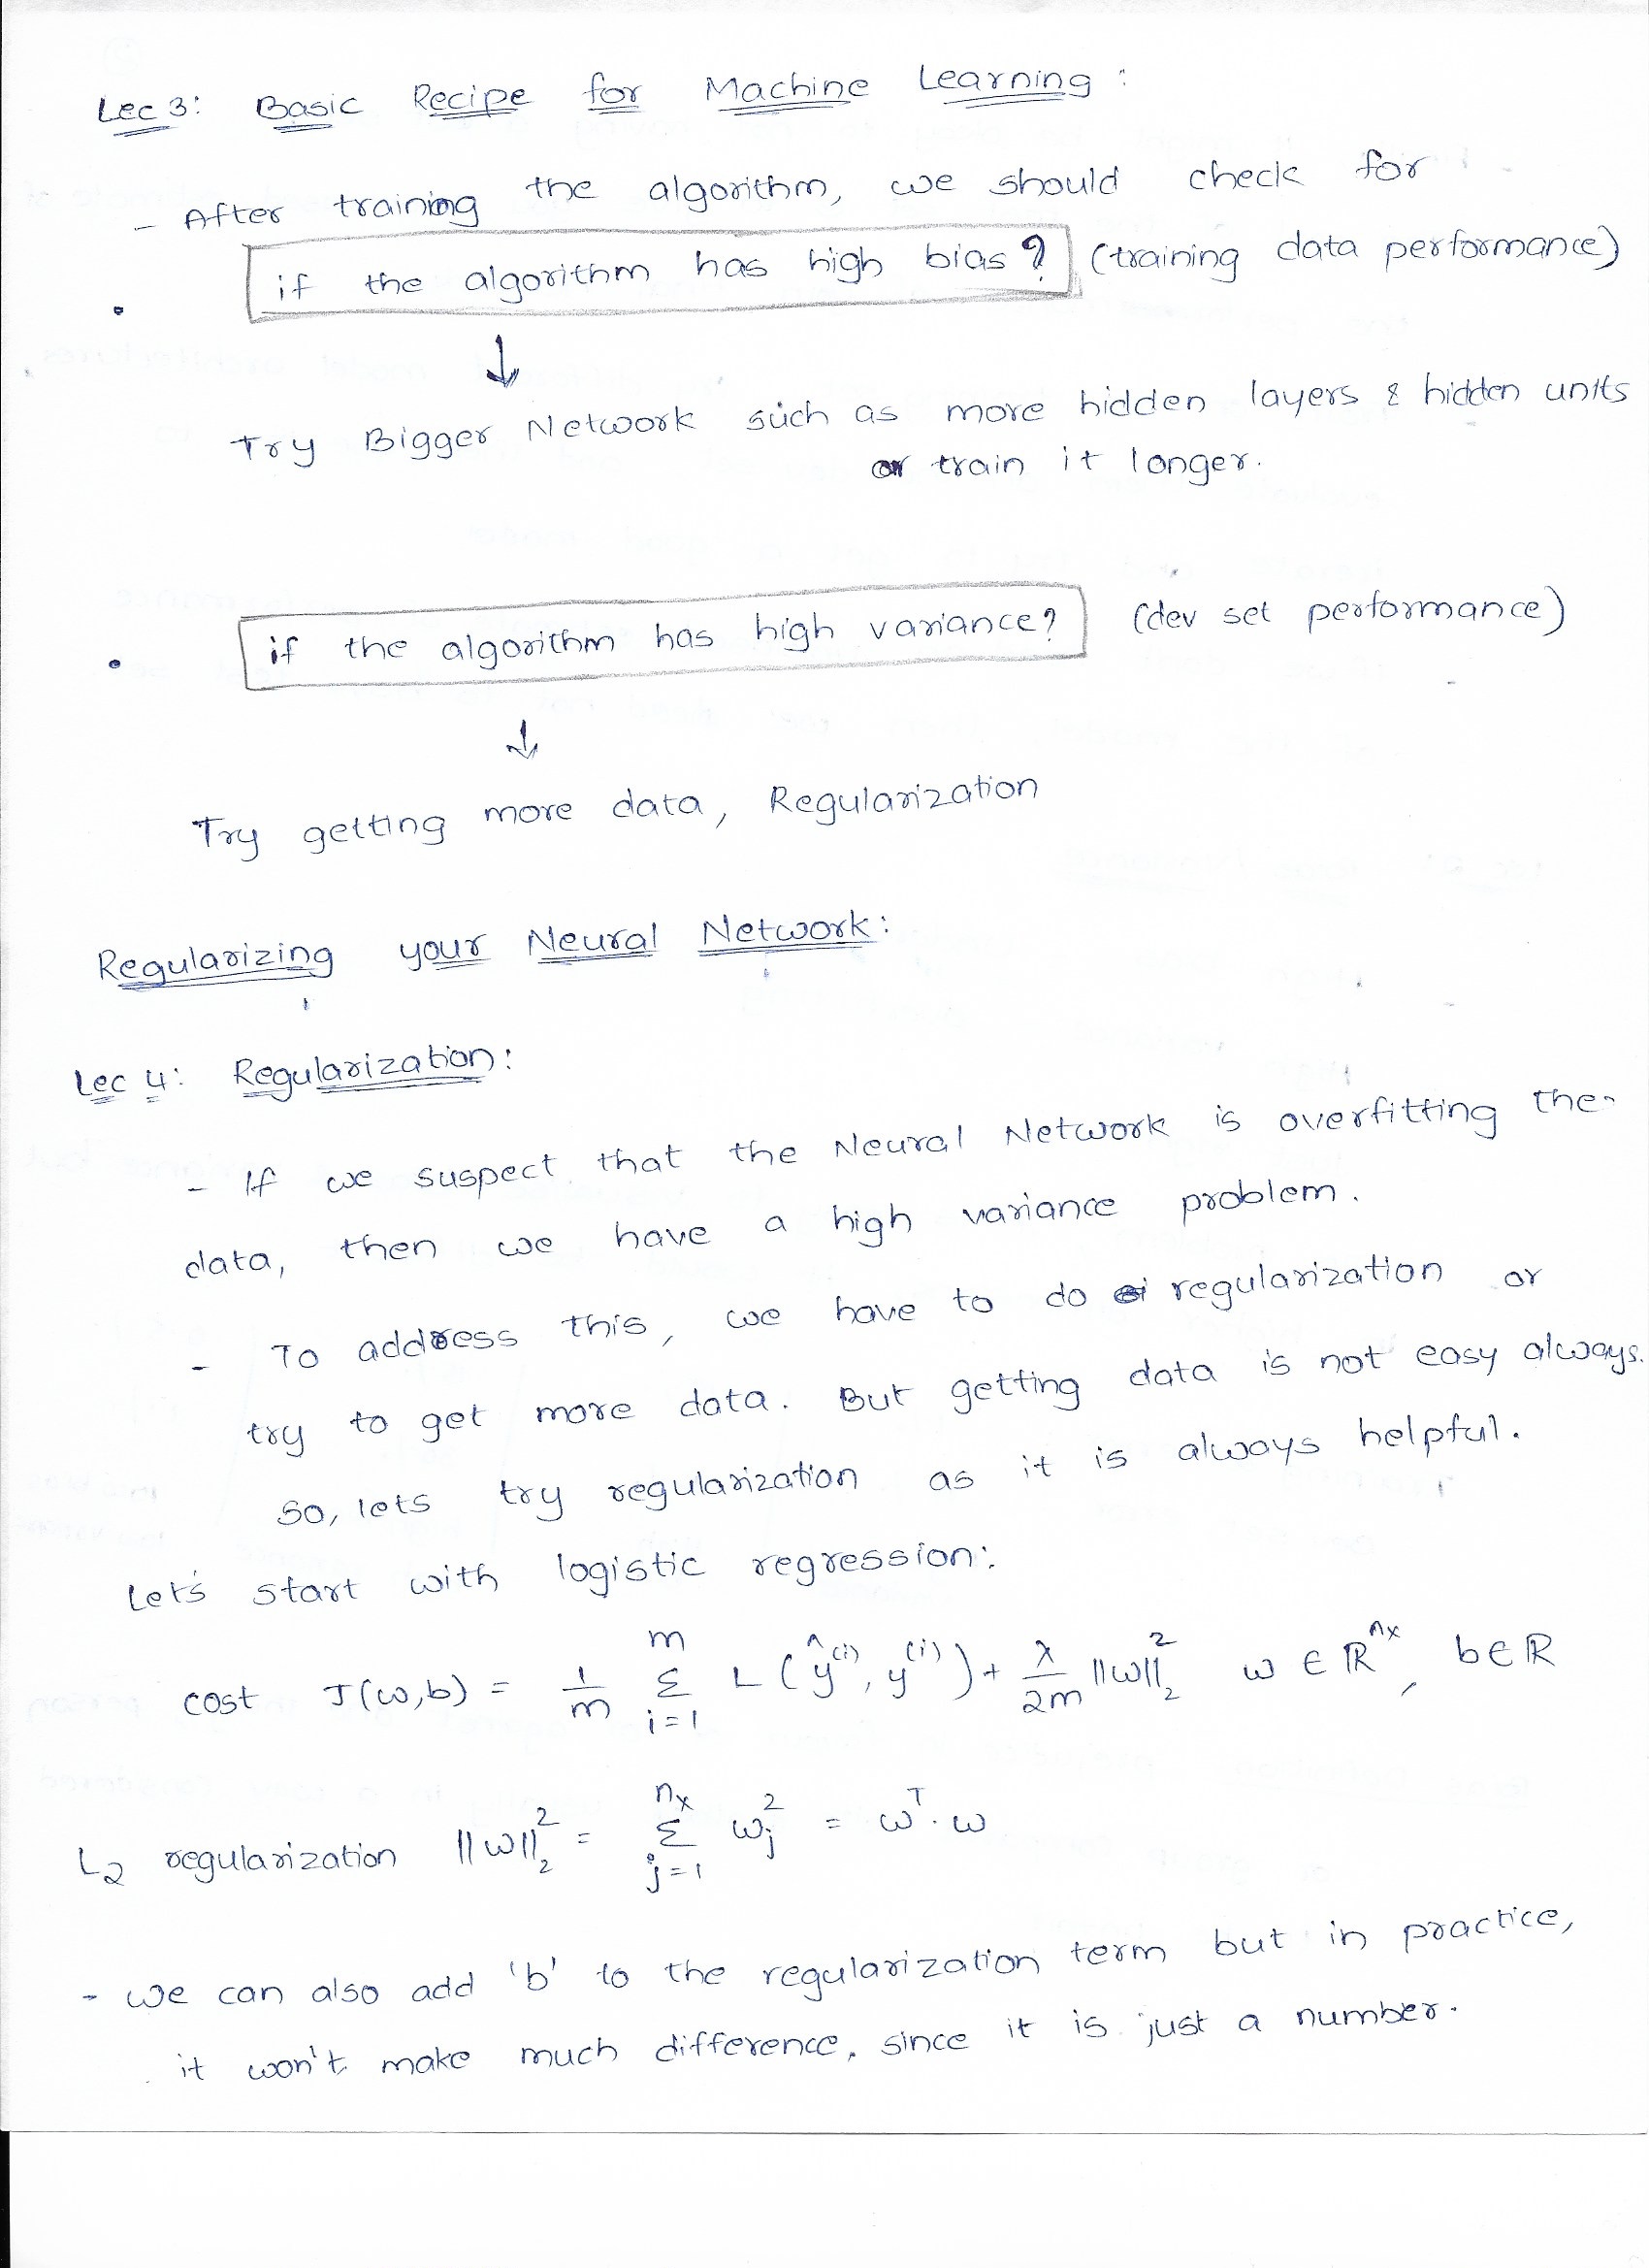 Lec 3: Basic Recipe for Machine Learning:
- After training the algorithm, we should check for
• if the algorithm has high bias? (training data performance)
↓
Try Bigger Network such as more hidden layers & hidden units
or train it longer.
• if the algorithm has high variance? (dev set performance)
↓
Try getting more data, Regularization
Regularizing your Neural Network:
Lec 4: Regularization:
- If we suspect that the Neural Network is overfitting the
data, then we have a high variance problem.
- To address this, we have to do regularization or
try to get more data. But getting data is not easy always.
So, lets try regularization as it is always helpful.
Let's start with logistic regression:
cost J(w,b) = 1/m Σ_{i=1}^{m} L(ŷ^(i), y^(i)) + λ/2m ||w||₂² w ∈ ℝ^{nx}, b∈ℝ
L2 regularization ||w||₂² = Σ_{j=1}^{nx} wj² = w^T . w
- we can also add 'b' to the regularization term but in practice,
it won't make much difference, since it is just a number.